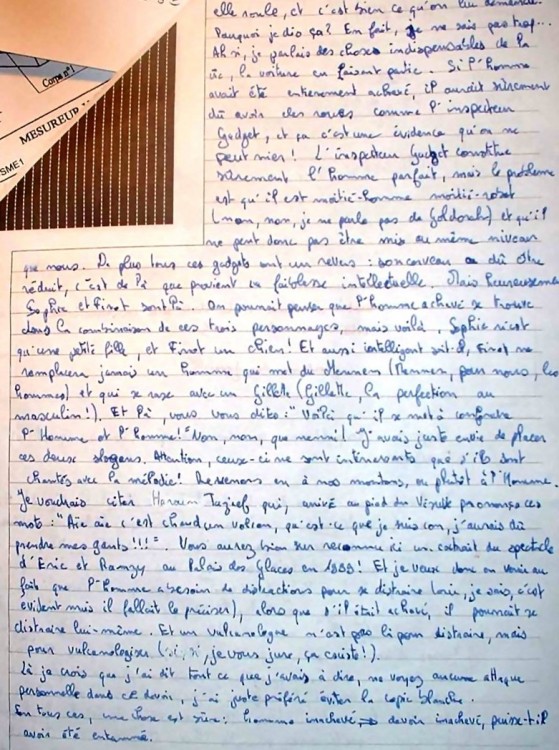 Corps n°1
MESUREUP
SME 1
elle roule, et c'est bien ce qu'on lui demande.
Pourquoi je dis ça? En fait, je ne sais pas trop...
Ah si, je parlais des choses indispensables de la
vie, la voiture en faisant partie. Si l'Homme
avait été entièrement achevé, il aurait sûrement
dû avoir des roues comme l'inspecteur
Gadget, et ça c'est une évidence qu'on ne
peut nier! L'inspecteur Gadget constitue
sûrement l'homme parfait, mais le problème
est qu'il est moitié-homme moitié-robot
(non, non, je ne parle pas de Goldorak) et qu'il
ne peut donc pas être mis au même niveau
que nous. De plus tous ces gadgets ont un revers : son cerveau a dû être
réduit, c'est de là que provient sa faiblesse intellectuelle. Mais heureusement
Sophie et Finot sont là. On pourrait penser que l'homme achevé se trouve
dans la combinaison de ces trois personnages, mais voilà, Sophie n'est
qu'une petite fille, et Finot un chien! Et aussi intelligent soit-il, Finot ne
remplacera jamais un homme qui met du Mennen (Mennen, pour nous, les
hommes) et qui se rase avec un Gillette (Gillette, la perfection au
masculin!). Et là, vous vous dites : "Voilà qu'il se met à confondre
l'Homme et l'homme!" Non, non, que nenni! J'avais juste envie de placer
ces deux slogans. Attention, ceux-ci ne sont intéressants que s'ils sont
chantés avec la mélodie! Revenons en à nos moutons, ou plutôt à l'Homme.
Je voudrais citer Haroun Tazieff qui, arrivé au pied du Vésuve prononça ces
mots : "Aïe aïe c'est chaud un volcan, qu'est-ce que je suis con, j'aurais dû
prendre mes gants!!!". Vous aurez bien sûr reconnu ici un extrait du spectacle
d'Eric et Ramzy au Palais des Glaces en 1998! Et je veux donc en venir au
fait que l'Homme a besoin de distractions pour se distraire (oui, je sais, c'est
évident mais il fallait le préciser), alors que s'il était achevé, il pourrait se
distraire lui-même. Et un vulcanologue n'est pas là pour distraire, mais
pour vulcanologiser (si, si, je vous jure, ça existe!).
Là je crois que j'ai dit tout ce que j'avais à dire, ne voyez aucune attaque
personnelle dans ce devoir, j'ai juste préféré éviter la copie blanche.
En tous cas, une chose est sûre : homme inachevé => devoir inachevé, puisse-t-il
avoir été entamé.